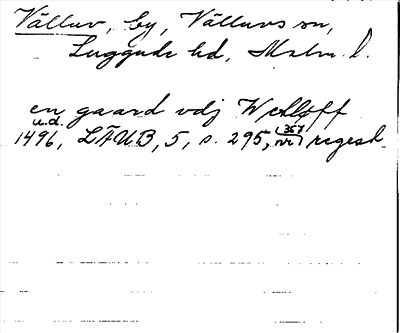 Välluv, by, Välluvs sn,
Luggude hd, Malm. l.
en gaard vdj Wellöff
u.d.
1496, LÄUB, 5, s. 295, (nr 357) regest.